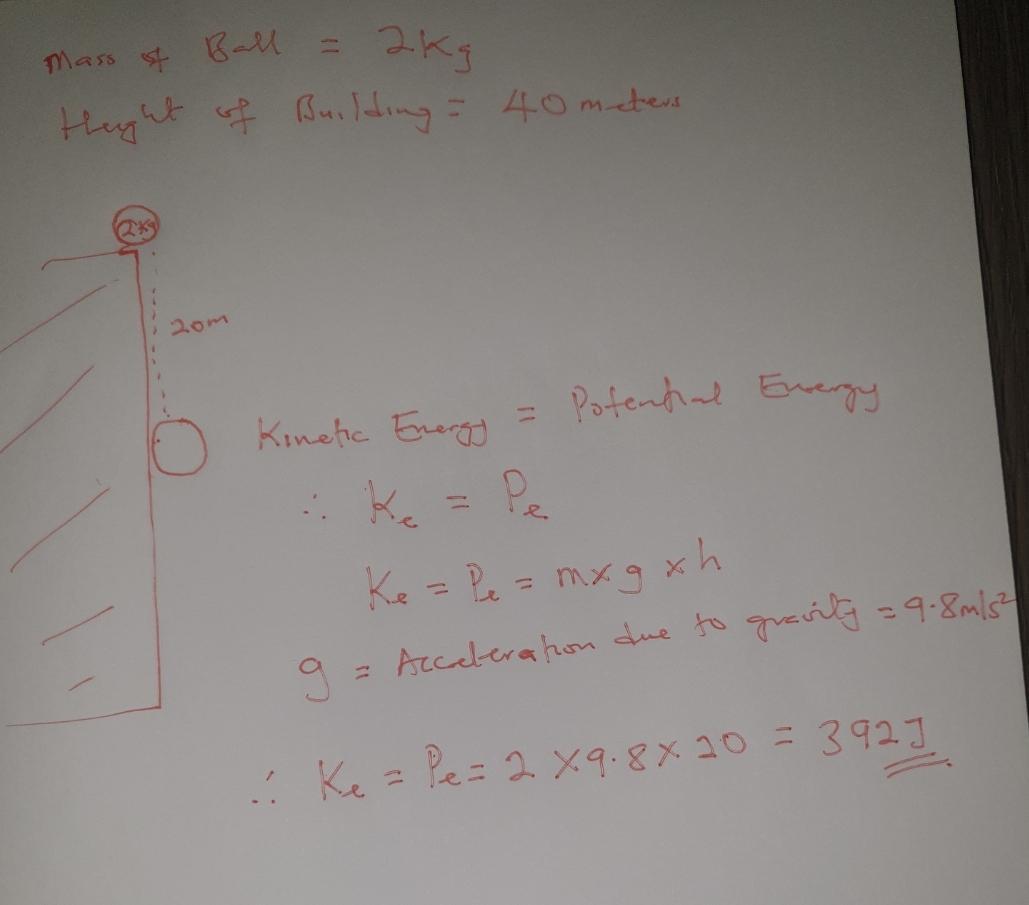 Mass of Ball = 2Kg
Height of Building = 40 meters
2Kg
20m
Kinetic Energy = Potential Energy
∴ Ke = Pe
Ke = Pe = m×g×h
g = Acceleration due to gravity = 9.8m/s²
∴ Ke = Pe = 2 × 9.8 × 20 = 392J